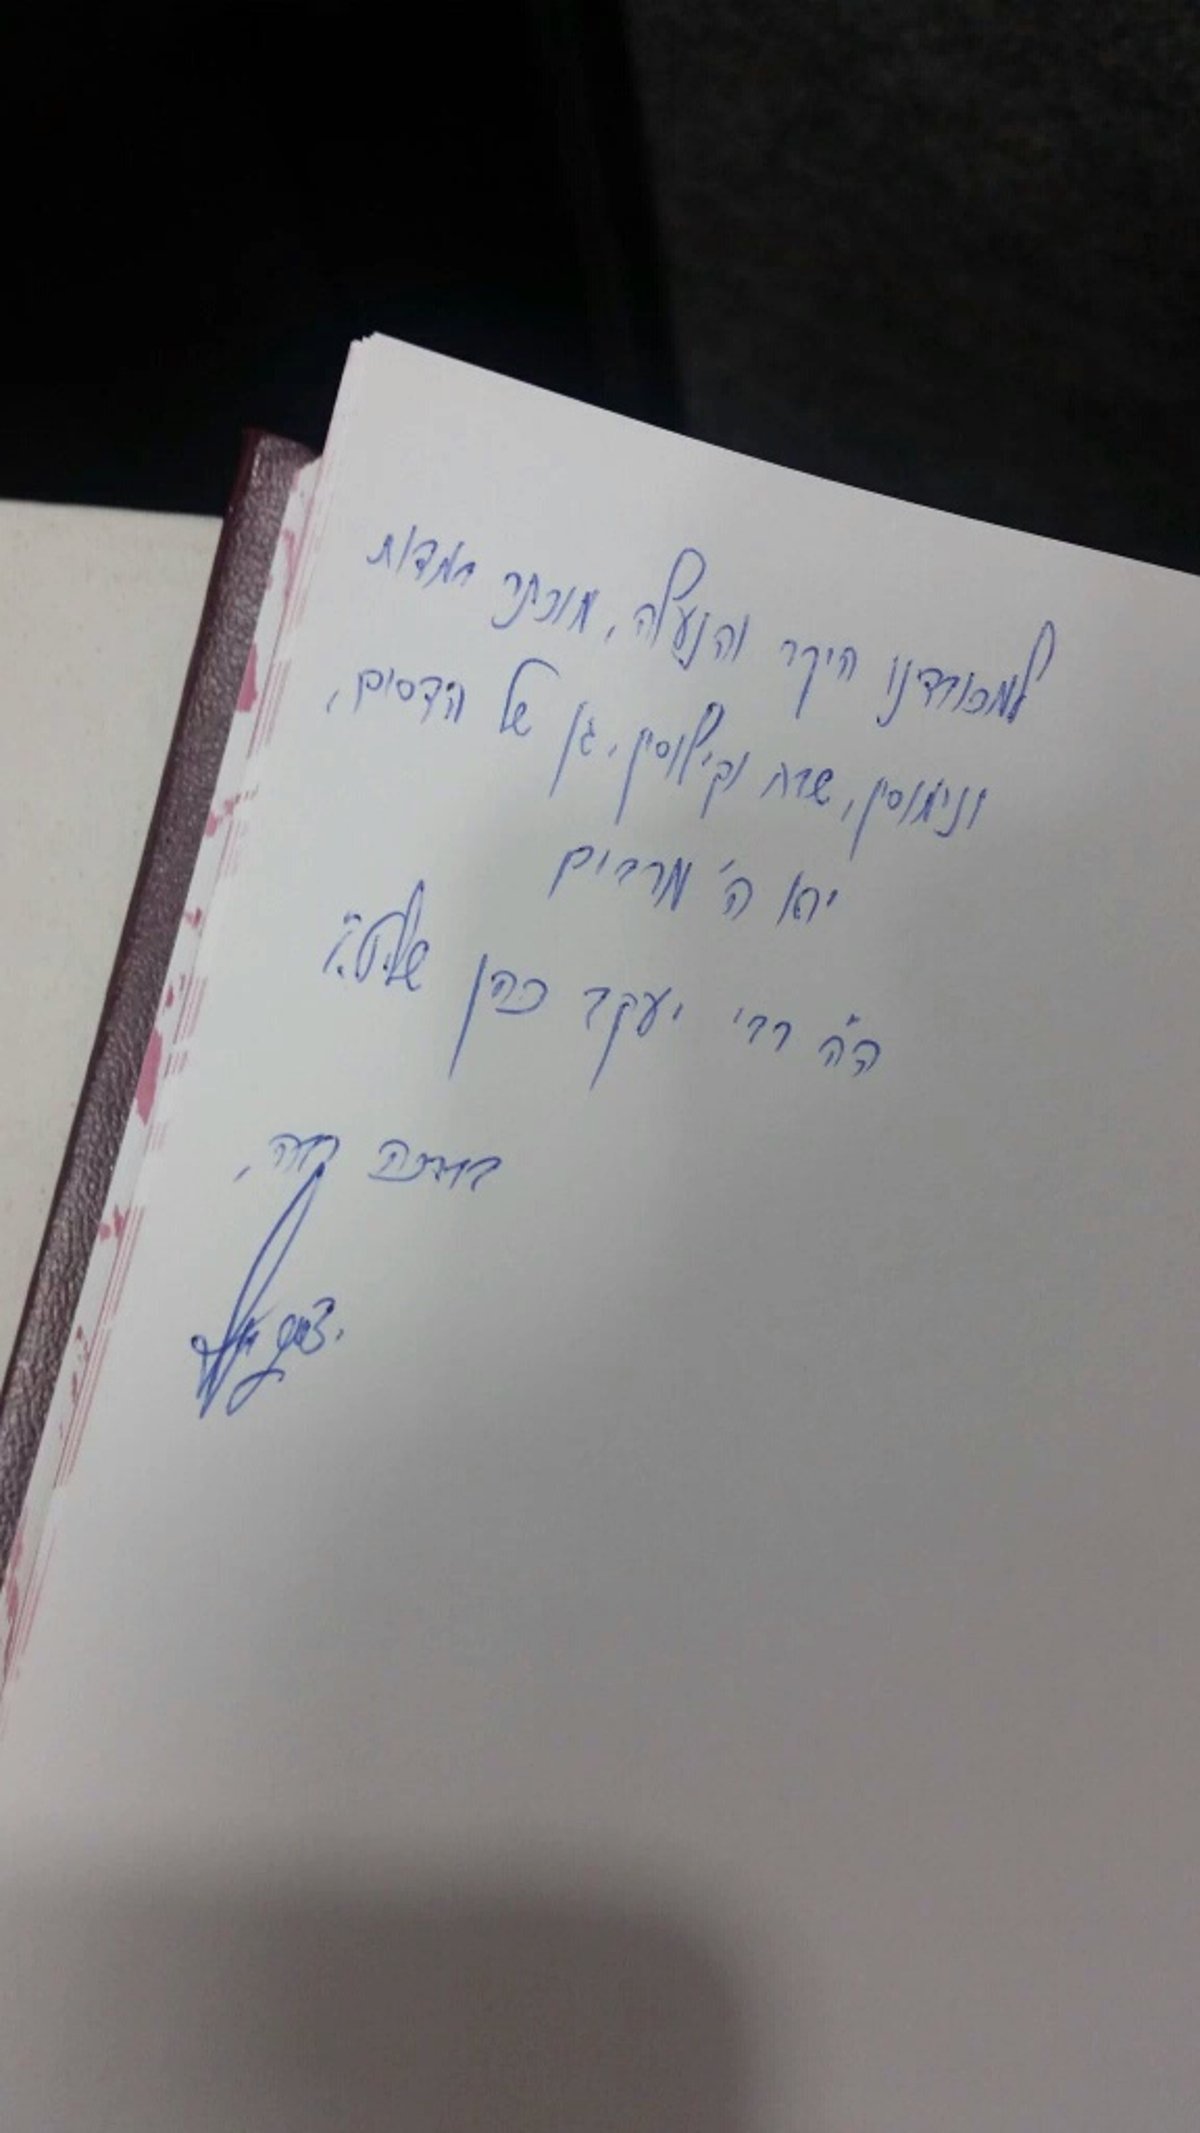 למכובדינו היקר והנעלה, מוכתר במדות
ונימוסין, שבח וקילוסין, גן של הדסים,
ירא ה' מרבים
ה"ה רבי יעקב כהן שליט"א
בברכה רבה,